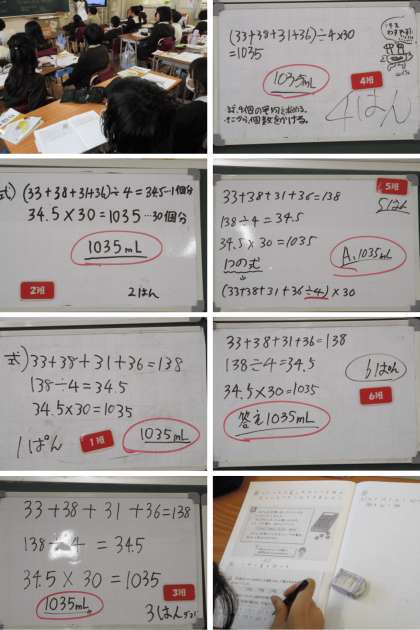 (33+38+31+36)÷4×30
=1035
1035mL
4班
4はん
式) (33+38+31+36)÷4=34.5…1個分
34.5×30=1035…30個分
1035mL
2班
2はん
5班
33+38+31+36=138
5はん
138÷4=34.5
34.5×30=1035
A,1035mL
1つの式
↓
(33+38+31+36÷4)×30
式)33+38+31+36=138
138÷4=34.5
34.5×30=1035
1ぱん
1班
1035mL
33+38+31+36=138
138÷4=34.5
34.5×30=1035
6ぱん
6班
答え1035mL
33+38+31+36=138
138÷4=34.5
34.5×30=1035
3班
1035mL
3はん